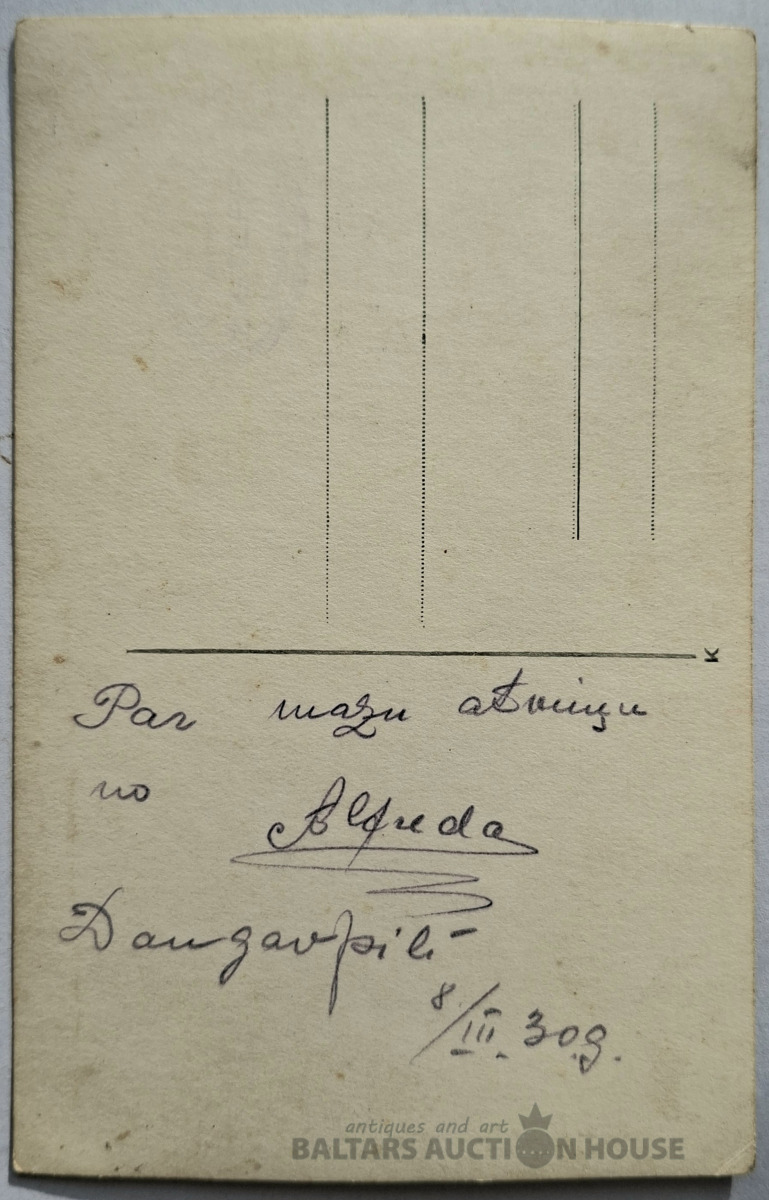 K
Par mazu atmiņu
no
Alfreda
Daugavpilī
8/III. 30g.
antiques and art
BALTARS AUCTION HOUSE